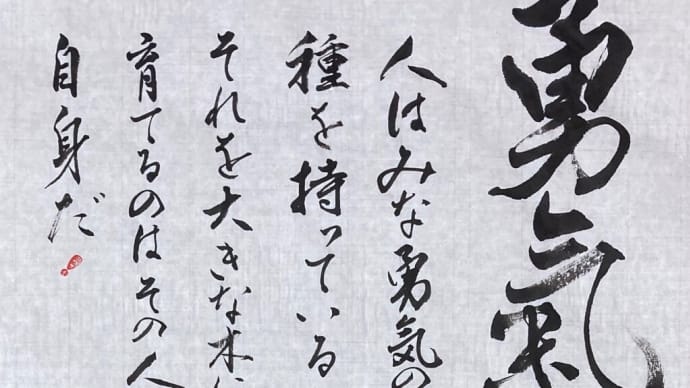 勇氣
人はみな勇気の
種を持っている
それを大きな木に
育てるのはその人
自身だ